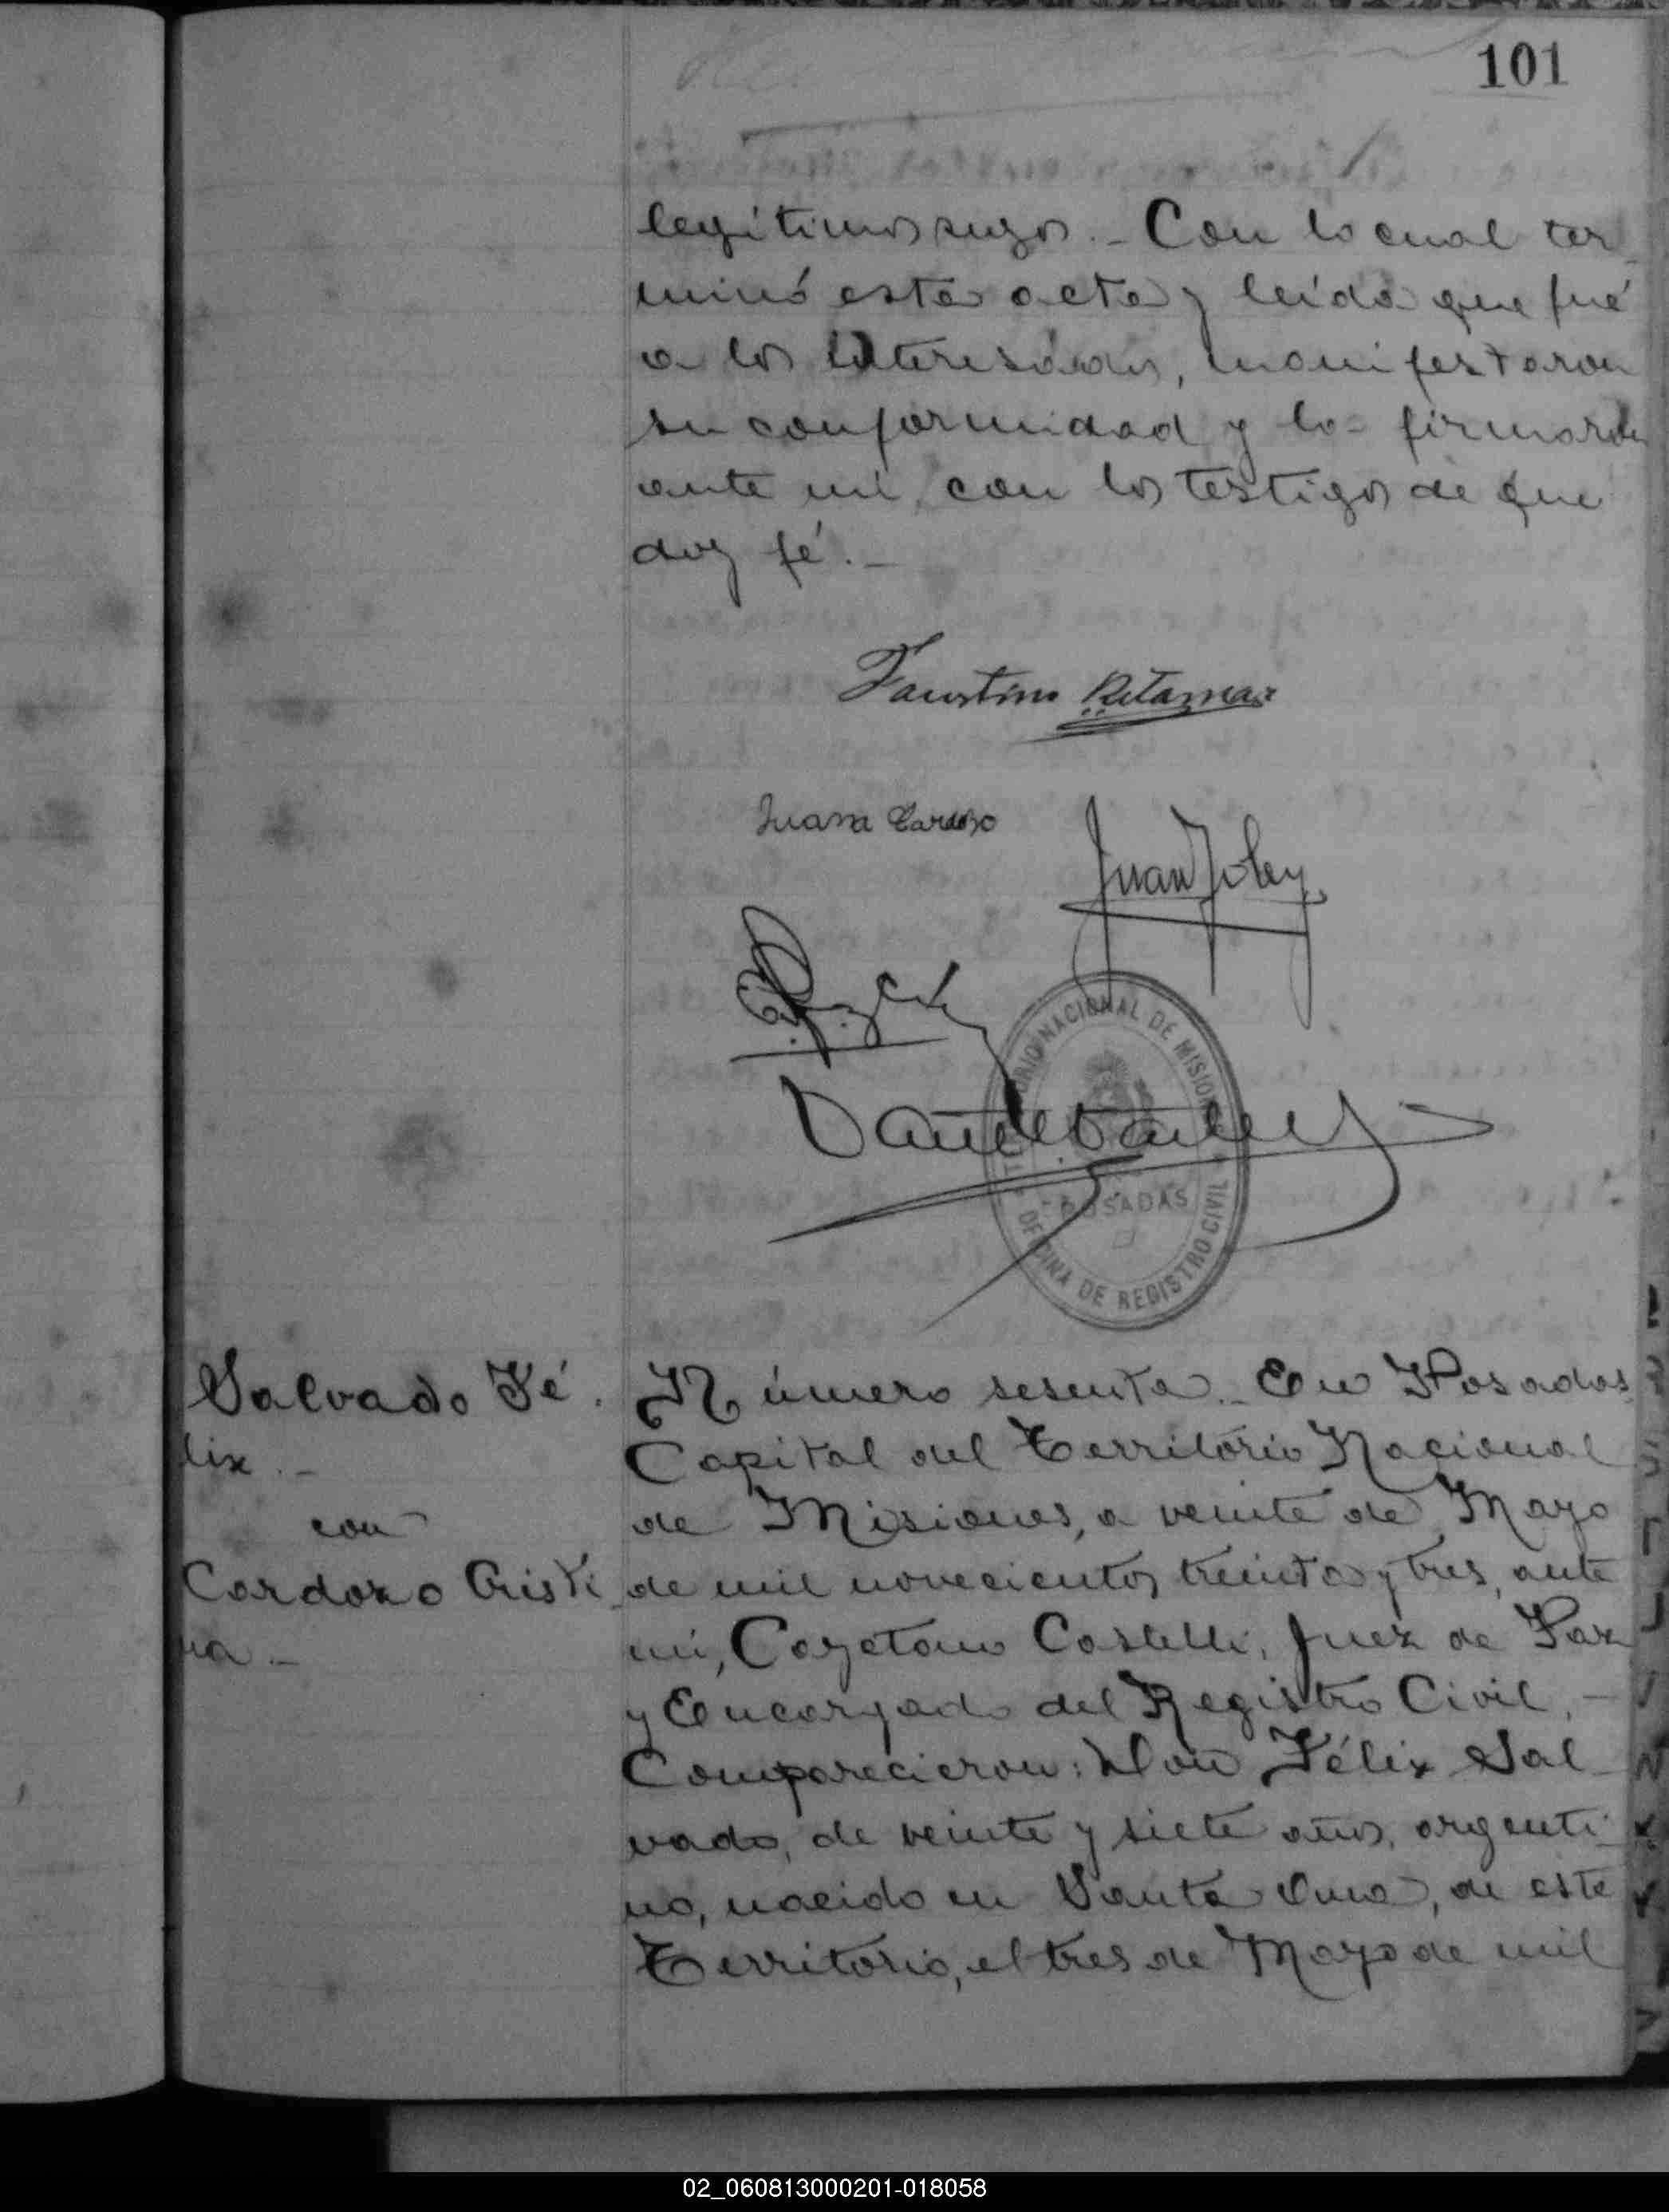 101
legítimos suyos.- Con lo cual ter
minó este acta y leída que fué
a los interesados, manifestaron
su conformidad y la firmaron
ante mí, con los testigos de que
doy fé.-
Faustino Retamar
Juana Cardozo
Juan
TERRITORIO NACIONAL DE MISIONES
POSADAS
OFICINA DE REGISTRO CIVIL
Salvado Fé
lix.-
con
Cardozo Cristi
na.-
Número sesenta.- En Posadas,
Capital del Territorio Nacional
de Misiones, a veinte de Mayo
de mil novecientos treinta y tres, ante
mí, Cayetano Castelli, Juez de Paz
y Encargado del Registro Civil,-
Comparecieron: Don Félix Sal
vado, de veinte y siete años, argenti
no, nacido en Santa Ana, de este
Territorio, el tres de Mayo de mil
02_060813000201-018058